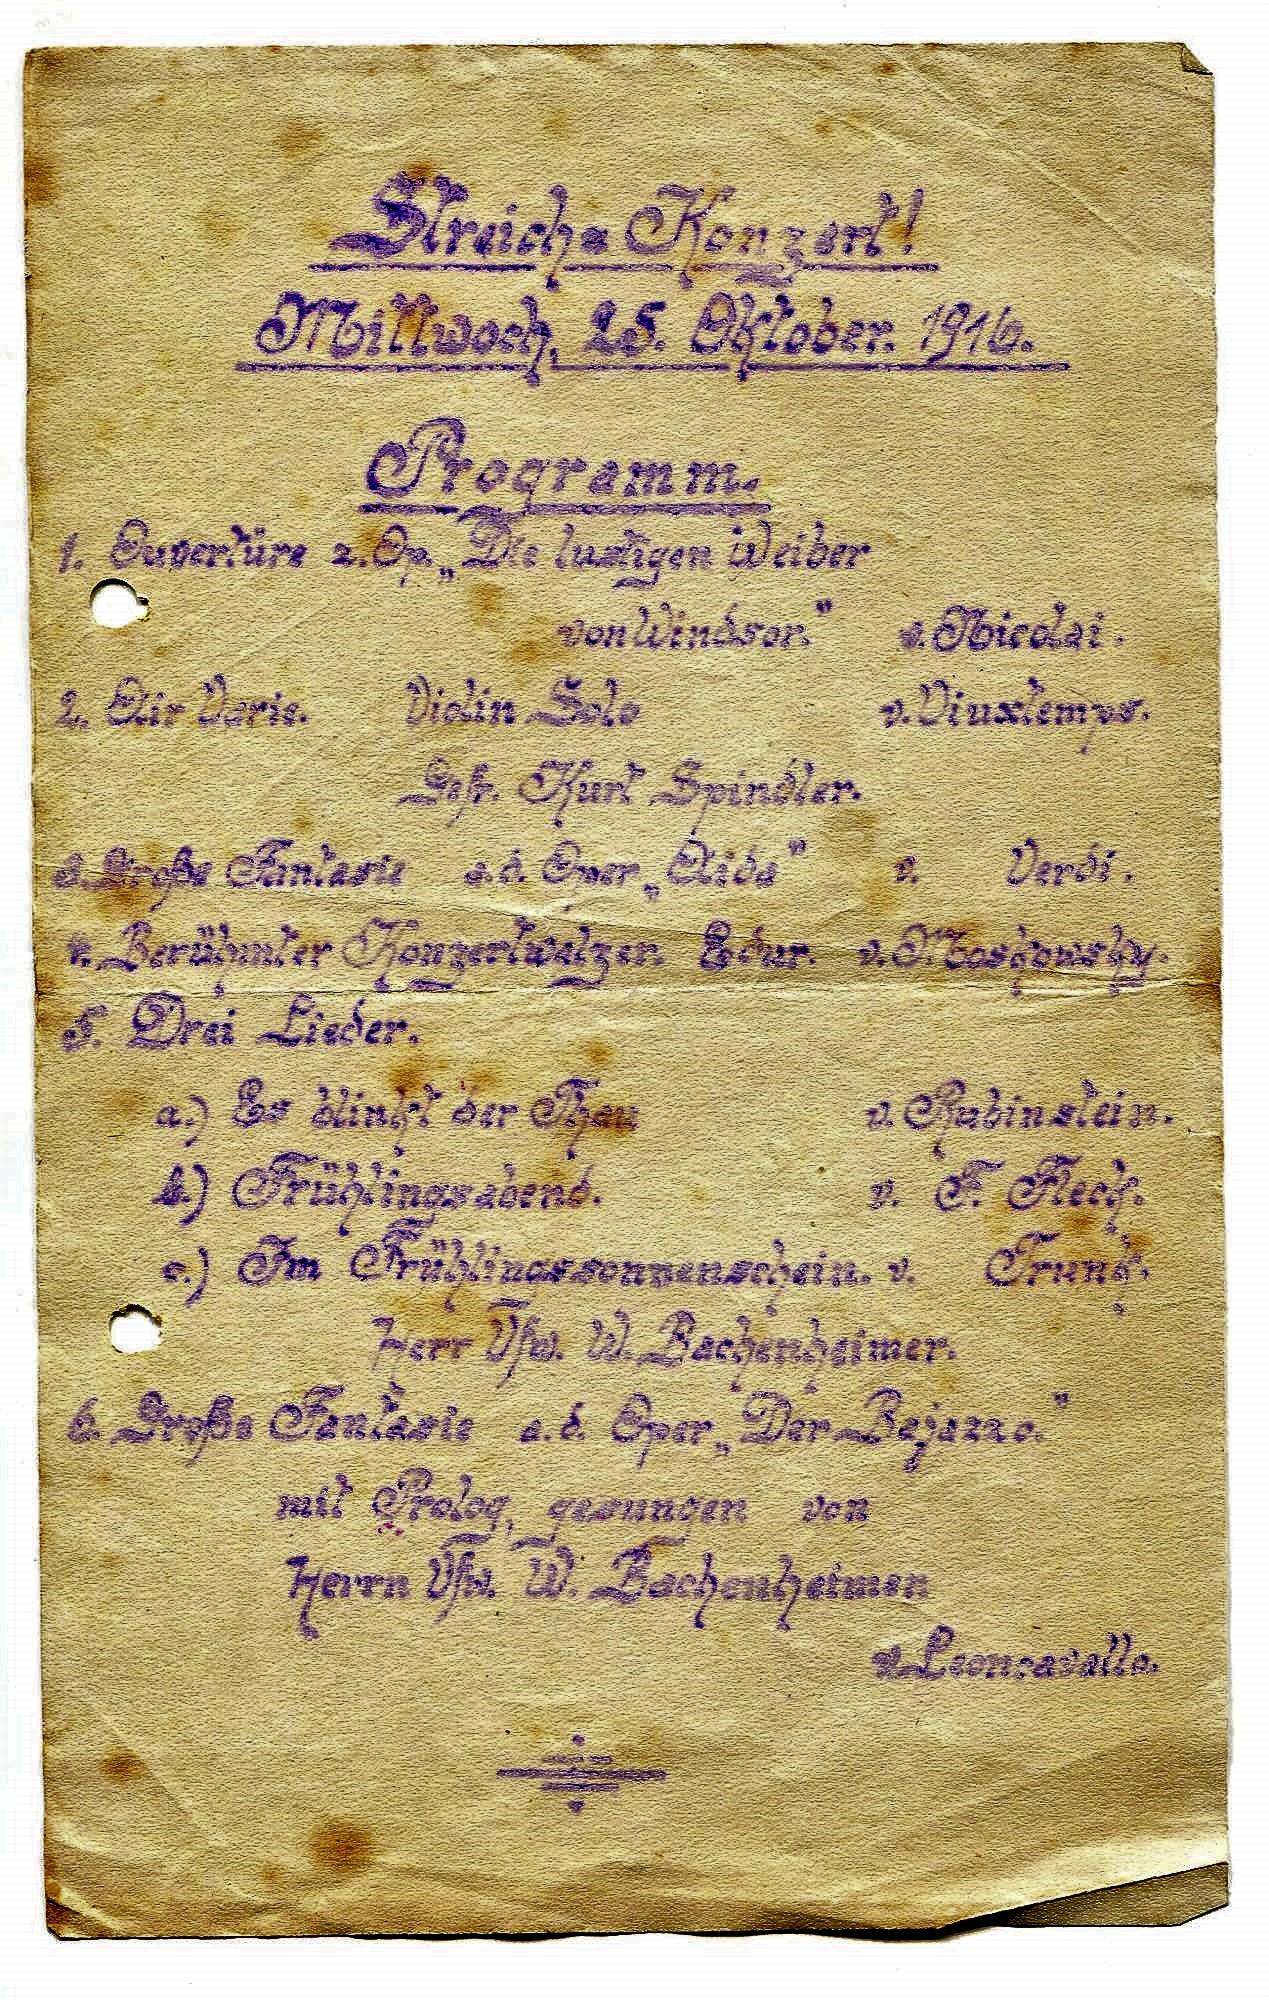 Streich = Konzert!
Mittwoch, 25. Oktober. 1916.
Programm.
1. Ouvertüre z. Op. „Die lustigen Weiber
von Windsor." v. Nicolai.
2. Air Varie. Violin Solo v. Viuxtemps.
Gefr. Kurt Spindler.
3. Große Fantasie a. d. Oper „Aida" v. Verdi.
4. Berühmter Konzertwalzer. Edur. v. Moszkowsky.
5. Drei Lieder.
a.) Es blinkt der Thau v. Rubinstein.
b.) Frühlingsabend. v. F. Fleck.
c.) Im Frühlingssonnenschein. v. Trunk.
Herr Vfw. W. Bachenheimer.
6. Große Fantasie a. d. Oper „Der Bajazzo."
mit Prolog, gesungen von
Herrn Vfw. W. Bachenheimer
v. Leoncavallo.